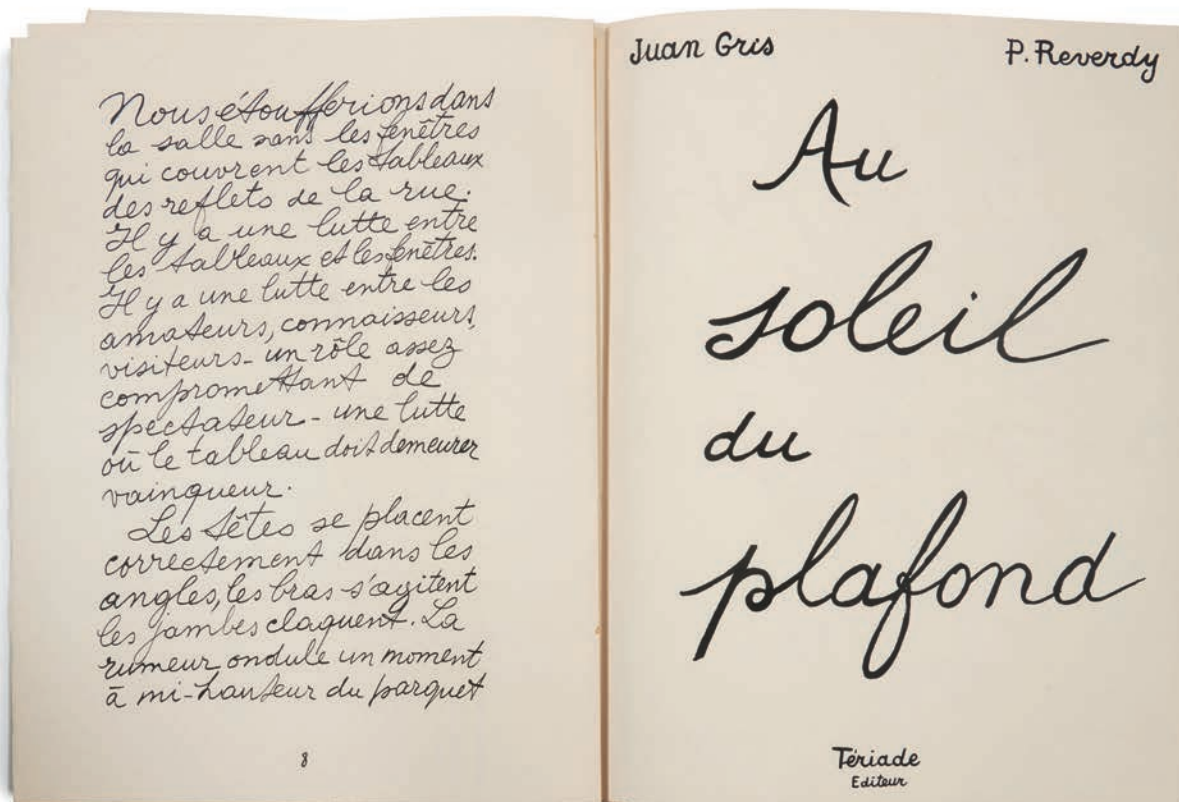 Nous étoufferions dans
la salle sans les fenêtres
qui couvrent les tableaux
des reflets de la rue.
Il y a une lutte entre
les tableaux et les fenêtres.
Il y a une lutte entre les
amateurs, connaisseurs,
visiteurs - un rôle assez
compromettant de
spectateur - une lutte
où le tableau doit demeurer
vainqueur.
Les têtes se placent
correctement dans les
angles, les bras s'agitent
les jambes claquent. La
rumeur ondule un moment
à mi-hauteur du parquet
8
Juan Gris P. Reverdy
Au
soleil
du
plafond
Tériade
Editeur